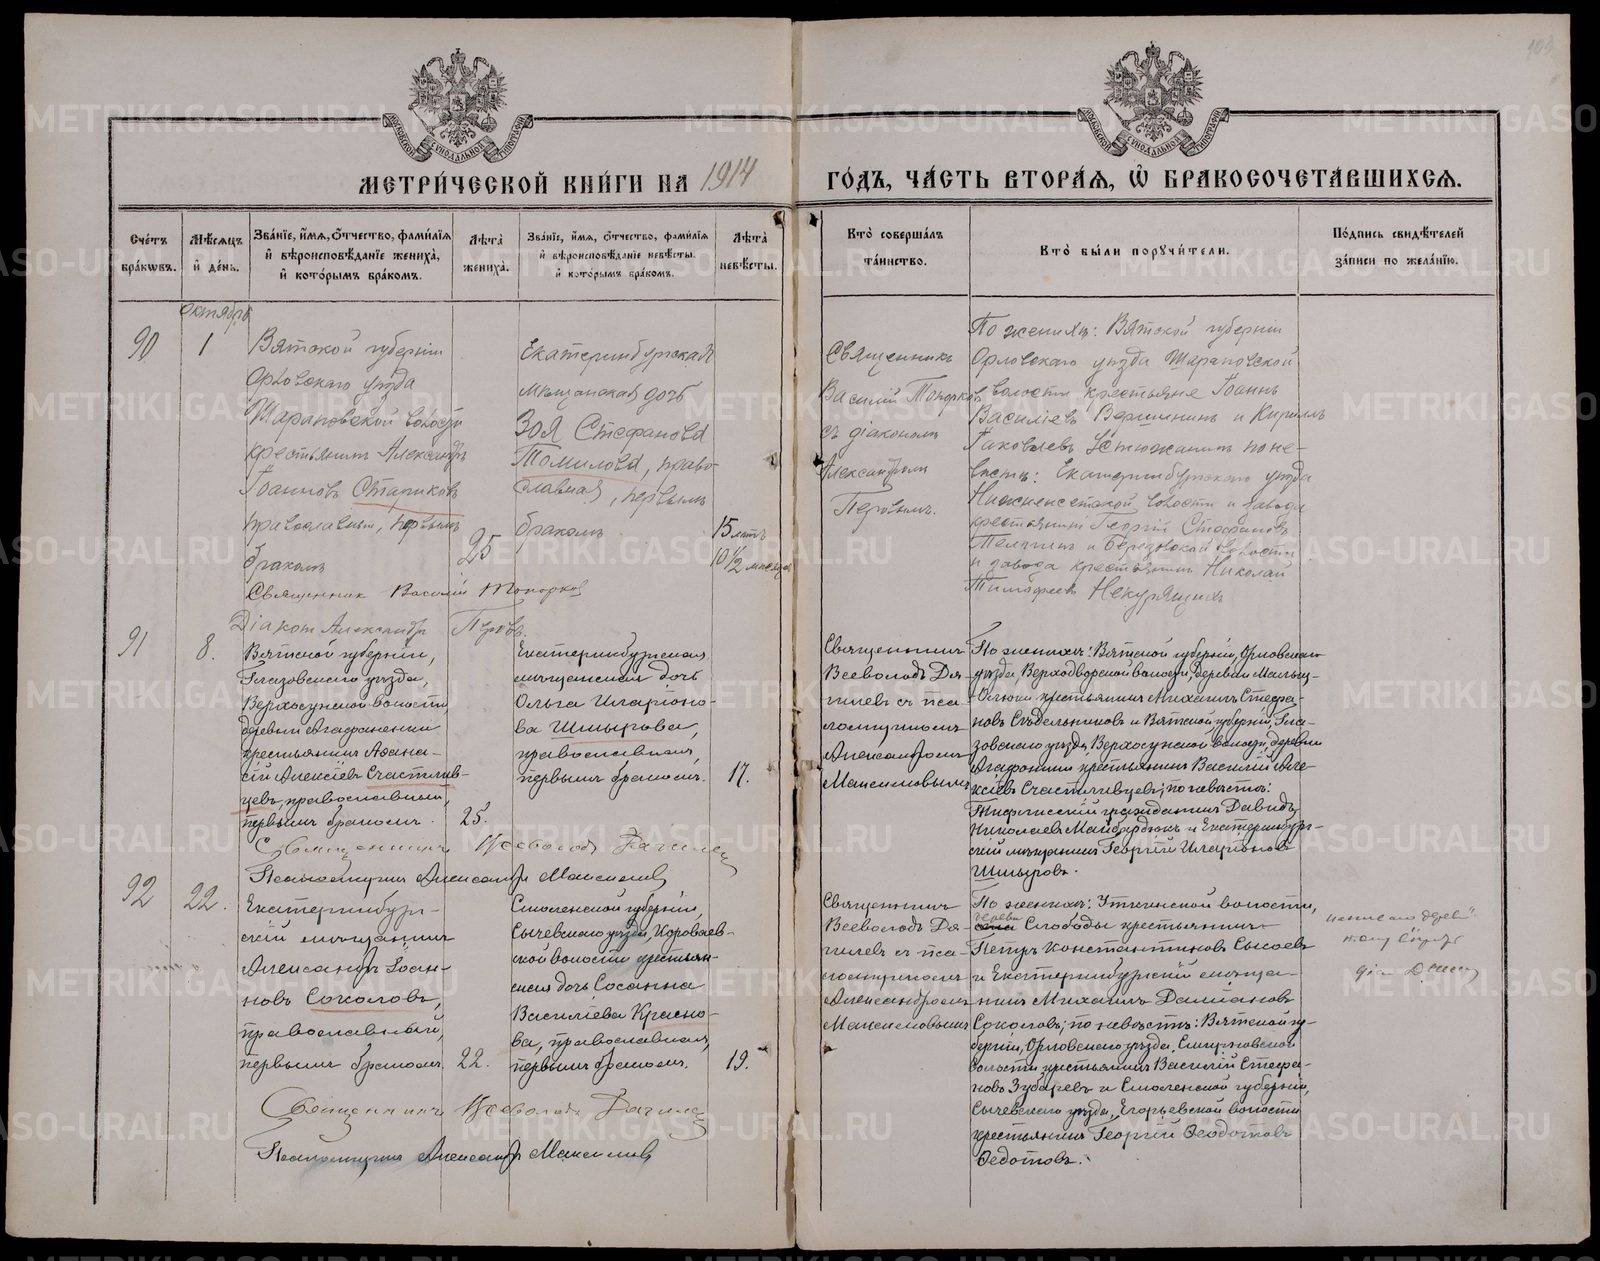 МЕТРИ́ЧЕСКОЙ КНИ́ГИ НА 1914
ГО́ДЪ, ЧА́СТЬ ВТОРА́Я, Ѡ҆ БРАКОСОЧЕТА́ВШИХСЯ.
Сче́тъ бра́кѡвъ.
Мѣ́сяцъ и҆ де́нь.
Зва́нїе, и҆́мя, ѻ҆́тчество, фами́лїя и҆ вѣроисповѣ́данїе жениха̀, и҆ кото́рымъ бра́комъ.
Лѣ́та̀ жениха̀.
Зва́нїе, и҆́мя, ѻ҆́тчество, фами́лїя и҆ вѣроисповѣ́данїе невѣ́сты, и҆ кото́рымъ бра́комъ.
Лѣ́та̀ невѣ́сты.
Кто̀ соверша́лъ та́инство.
Кто̀ бы́ли порꙋчи́тели.
По́дпись свидѣ́телей за́писи по жела́нїю.
Октябрь
90
1
Вятской губерніи
Орловскаго уѣзда
Шарановской волости
крестьянинъ Александръ
Іоанновъ Стариковъ
православный, первымъ
бракомъ
25
Екатеринбургская
мѣщанская дочь
Зоя Стефанова
Томилова, право-
славная, первымъ
бракомъ
15 лѣтъ
10 1/2 мѣсяцев
Священникъ
Василій Топорковъ
съ діакономъ
Александромъ
Перовымъ.
По женихѣ: Вятской губерніи
Орловскаго уѣзда Шарановской
волости крестьяне Іоаннъ
Васильевъ Вершининъ и Кириллъ
Іаковлевъ Устюжанинъ по не-
вѣстѣ: Екатеринбургскаго уѣзда
Нижнеисетской волости и завода
крестьянинъ Георгій Стефановъ
и Березовской волости
и завода крестьянинъ Николай
Тимофеевъ Некурящихъ
Священник Василій Топорков
Діакон Александр Перовъ.
91
8.
Вятской губерніи,
Глазовскаго уѣзда,
Верхосунской волости
деревни Агафонкии
крестьянинъ Афана-
сій Алексіевъ Счастлив-
цевъ, православный,
первымъ бракомъ.
25.
Екатеринбургская
мѣщанская дочь
Ольга Иларіоно-
ва Шмырова,
православная,
первымъ бракомъ.
17.
Священникъ
Всеволодъ Дя-
гилевъ съ пса-
ломщикомъ
Александромъ
Максимовымъ
По женихѣ: Вятской губерніи, Орловскаго
уѣзда, Верходворской волости, деревни
крестьянинъ Михаилъ Стефа-
новъ Сѣдельниковъ и Вятской губерніи, Гла-
зовскаго уѣзда, Верхосунской волости, деревни
Агафонкии крестьянинъ Василій Але-
ксіевъ Счастливцевъ; по невѣстѣ:
гражданинъ Давидъ
Николаевъ и Екатеринбург-
скій мѣщанинъ Георгій Иларіоновъ
Шмыровъ.
Священникъ Всеволодъ Дягилевъ
Псаломщикъ Александръ Максимовъ
92
22.
Екатеринбург-
скій мѣщанинъ
Александръ Іоан-
новъ Соколовъ,
православный,
первымъ бракомъ.
22.
Смоленской губерніи,
Сычевскаго уѣзда,
ской волости крестьян-
ская дочь Сосанна
Василіева Красно-
ва, православная,
первымъ бракомъ.
19.
Священникъ
Всеволодъ Дя-
гилевъ съ пса-
ломщикомъ
Александромъ
Максимовымъ
По женихѣ: Уткинской волости,
Слободы крестьянинъ
Петръ Константиновъ Сысоевъ
и Екатеринбургскій мѣща-
нинъ Михаилъ Даміановъ
Соколовъ; по невѣстѣ: Вятской гу-
берніи, Орловскаго уѣзда,
волости крестьянинъ Василій Стефа-
новъ Зубаревъ и Смоленской губерніи,
Сычевскаго уѣзда, Егорьевской волости
крестьянинъ Георгій Ѳеодотовъ
Ѳедотовъ.
Священникъ Всеволодъ Дягилевъ
Псаломщикъ Александръ Максимовъ
METRIKI.GASO-URAL.RU